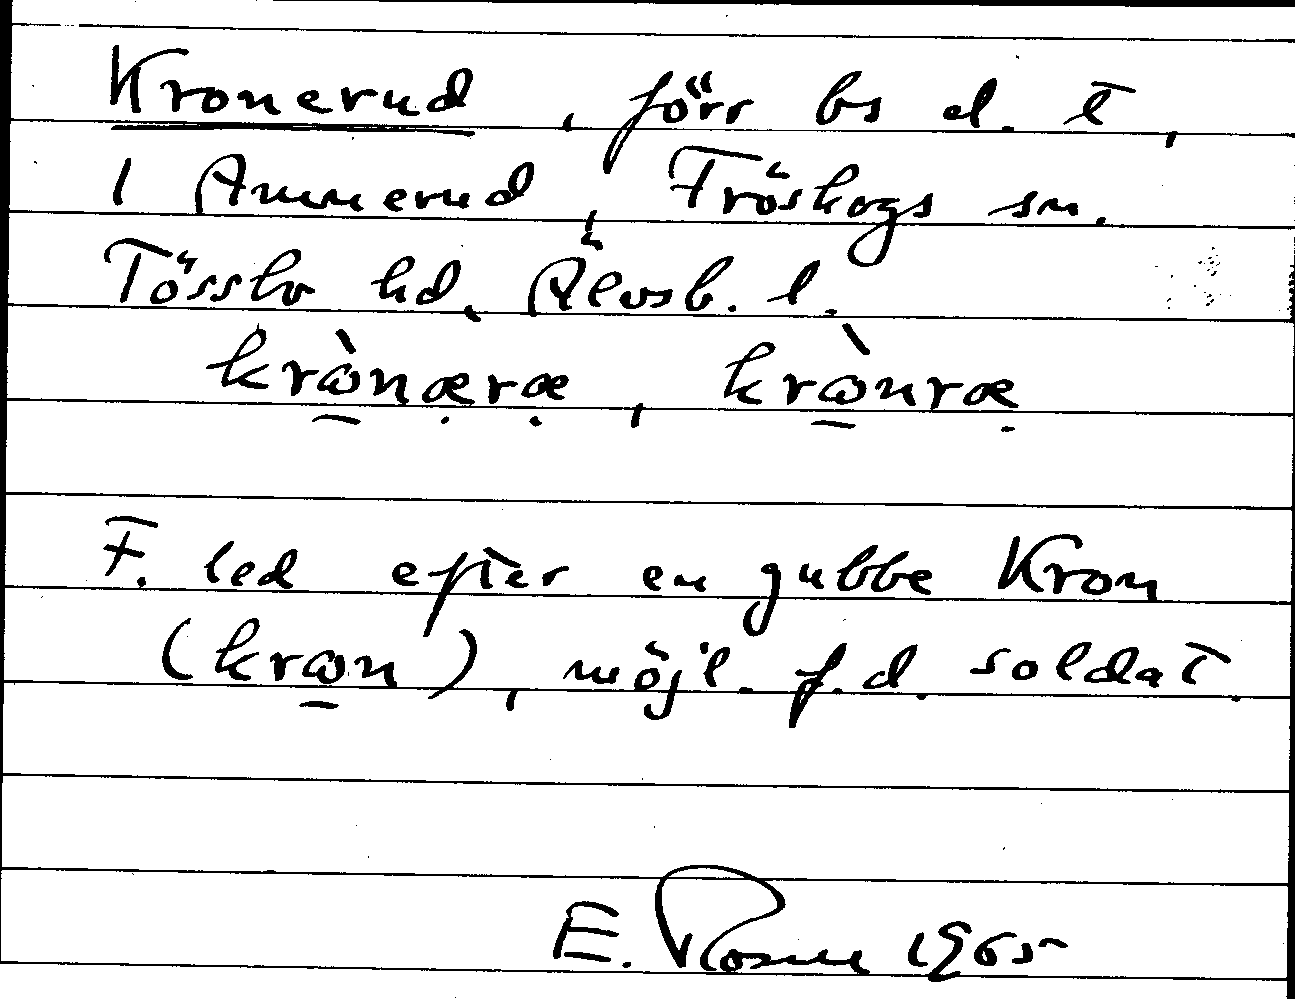 Kronerud, förr bs el. t,
1 Annerud, Fröskogs sn.
Tössbo hd, Älvsb. l.
krὼnæræ, krὼnræ
F. led efter en gubbe Kron
(krωn), möjl. f.d. soldat.
E. Rosne 1965